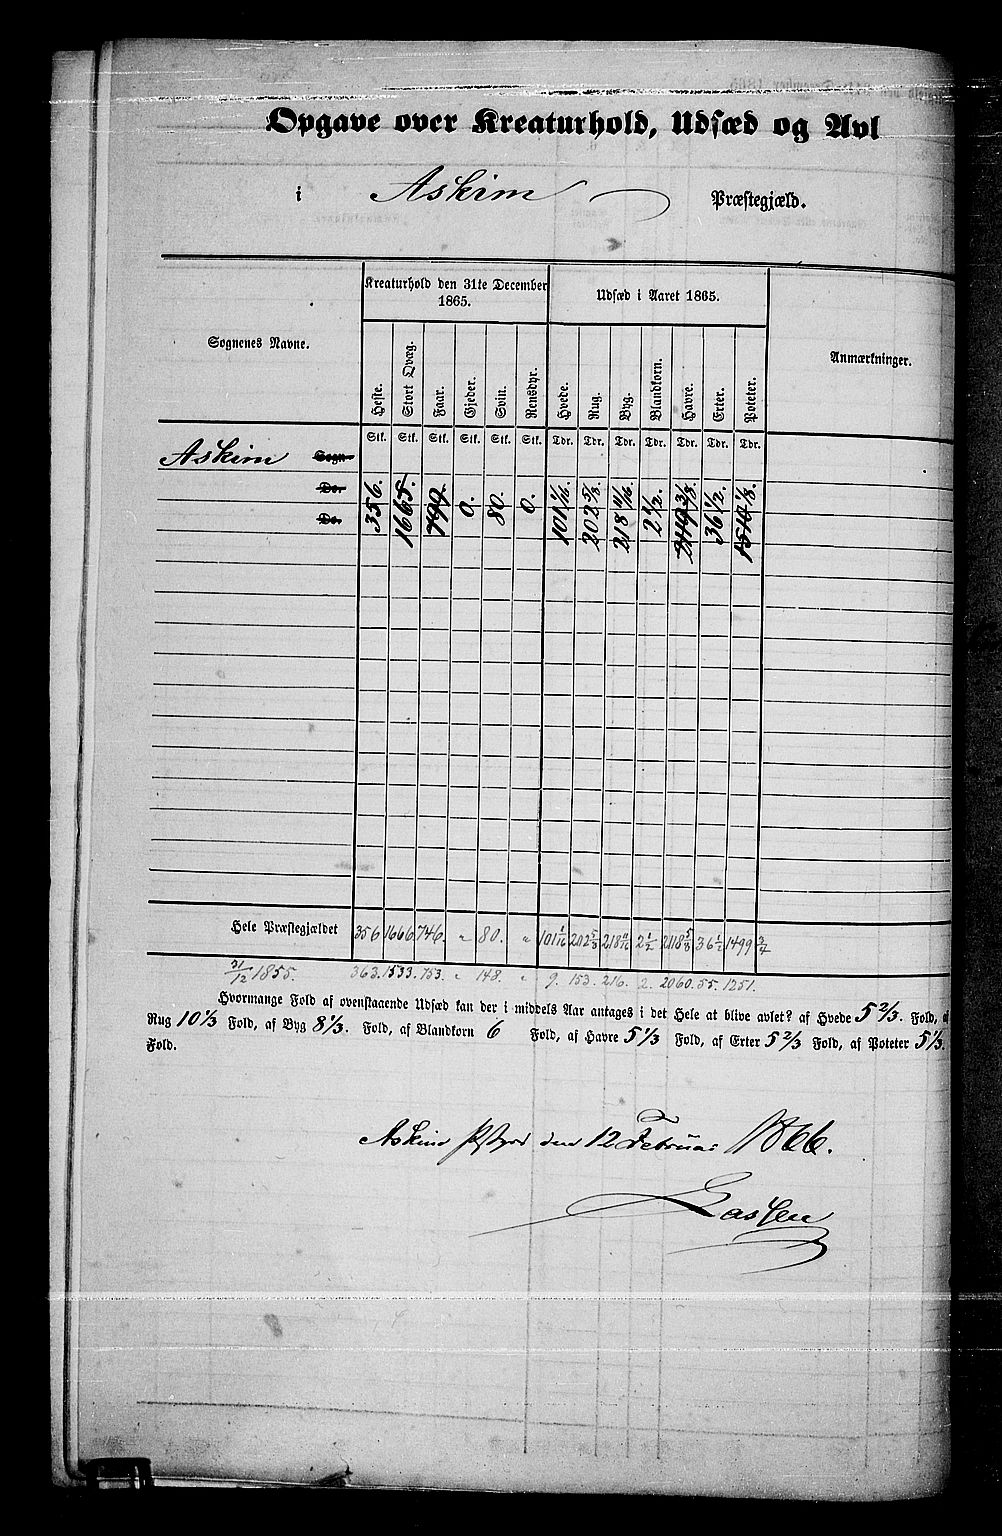 Opgave over Kreaturhold, Udsæd og Avl
i Askim Præstegjæld.
Sognenes Navne. Kreaturhold den 31te December 1865. Udsæd i Aaret 1865. Anmærkninger.
Heste. Stort Qvæg. Faar. Gjeder. Svin. Rensdyr. Hvede. Rug. Byg. Blandkorn. Havre. Erter. Poteter.
Stk. Stk. Stk. Stk. Stk. Stk. Tdr. Tdr. Tdr. Tdr. Tdr. Tdr. Tdr.
Askim Sogn
Do.
Do.
356. 1665. 0. 80. 0. 101 1/16 202 5/8. 218 11/16 2 1/2. 36 1/2.
Hele Præstegjældet 356 1666 746. " 80. " 101 1/16 202 5/8 218 11/16 2 1/2 2118 5/8 36 1/2 1499 3/4
31/12 1855. 363. 1533. 753. " 148. " 9. 153. 216. 2. 2060. 55. 1251.
Hvormange Fold af ovenstaaende Udsæd kan der i middels Aar antages i det Hele at blive avlet? af Hvede 5 2/3. Fold, af
Rug 10 1/3 Fold, af Byg 8 1/3. Fold, af Blandkorn 6 Fold, af Havre 5 1/3 Fold, af Erter 5 2/3 Fold, af Poteter 5 1/3.
Fold.
Askim den 12 Februar 1866.